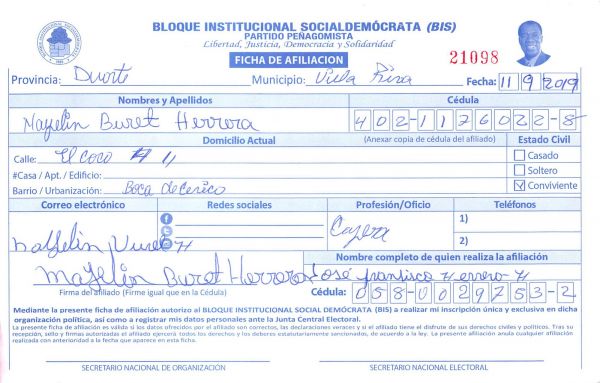 BLOQUE INSTITUCIONAL SOCIALDEMÓCRATA (BIS)
PARTIDO PEÑAGOMISTA
Libertad, Justicia, Democracia y Solidaridad
FICHA DE AFILIACION
21098
Provincia: Duarte Municipio: Villa Riva Fecha: 11 9 2019
Nombres y Apellidos Cédula
Mayelin Buret Herrera 402-1176022-8
Domicilio Actual (Anexar copia de cédula del afiliado) Estado Civil
Calle: El coco # 11 Casado
#Casa / Apt. / Edificio: Soltero
Barrio / Urbanización: Boca de Cevico Conviviente
Correo electrónico Redes sociales Profesión/Oficio Teléfonos
1)
Cajera
2)
Nombre completo de quien realiza la afiliación
Mayelin Buret Herrera José francisco Herrero H
Firma del afiliado (Firme igual que en la Cédula) Cédula: 058-0029753-2
Mediante la presente ficha de afiliación autorizo al BLOQUE INSTITUCIONAL SOCIAL DEMÓCRATA (BIS) a realizar mi inscripción única y exclusiva en dicha
organización política, así como a registrar mis datos personales ante la Junta Central Electoral.
La presente ficha de afiliación es valida si los datos ofrecidos por el afiliado son correctos, las declaraciones veraces y si el afiliado tiene el disfrute de sus derechos civiles y políticos. Tras su
recepción, sello y firmas autorizadas el afiliado ejercerá todos los derechos y los deberes estatutariamente sancionados, de acuerdo a la ley. La presente afiliación anula cualquier afiliación
realizada con anterioridad a la fecha que aparece en esta ficha.
SECRETARIO NACIONAL DE ORGANIZACIÓN SECRETARIO NACIONAL ELECTORAL